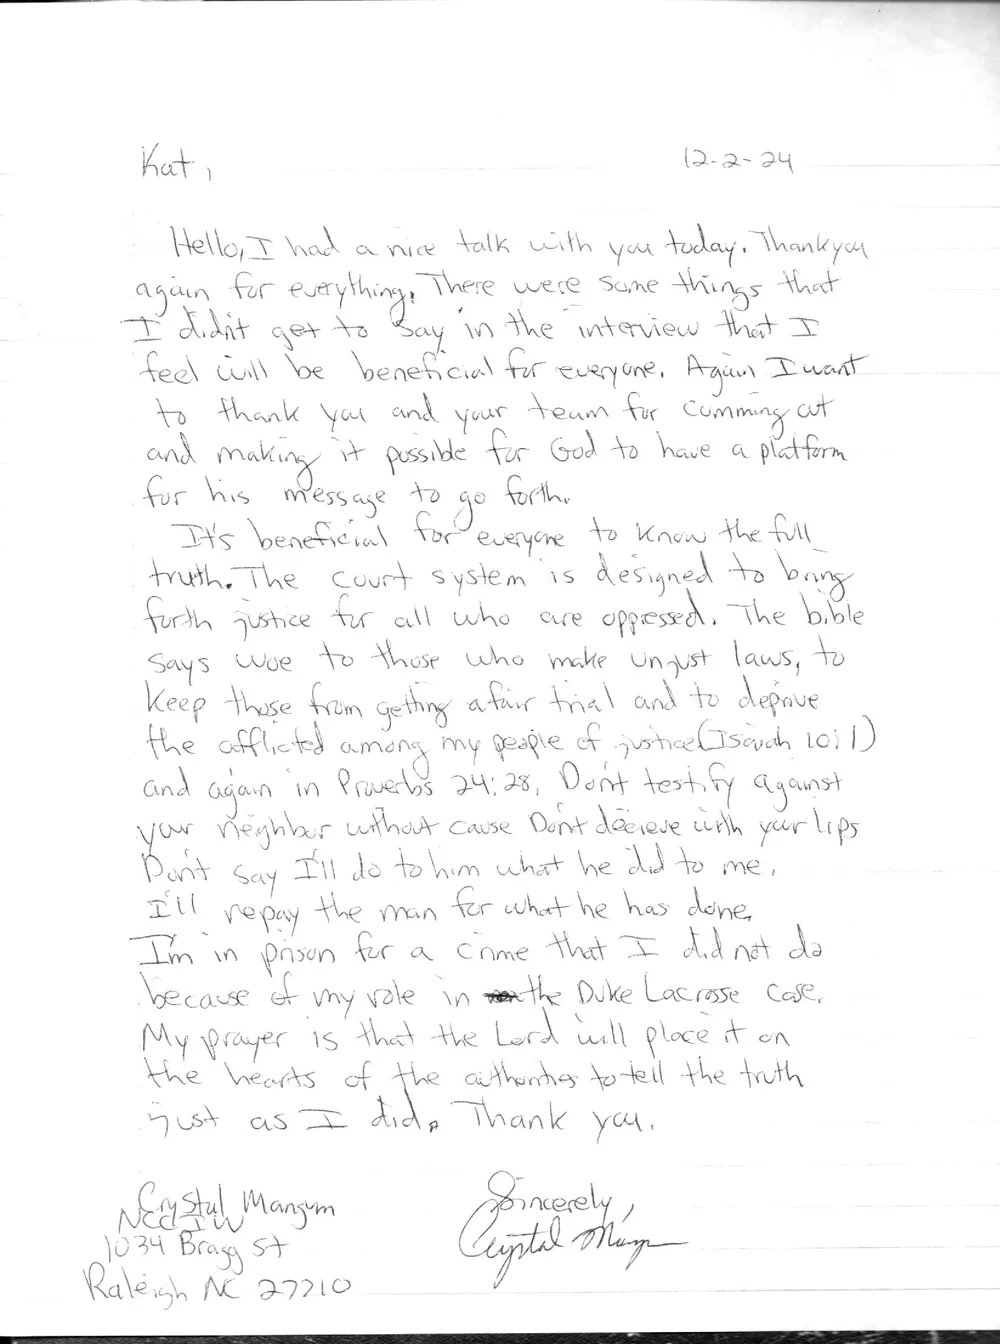 Kat,
12-2-24
Hello, I had a nice talk with you today. Thank you
again for everything. There were some things that
I didn't get to say in the interview that I
feel will be beneficial for everyone. Again I want
to thank you and your team for cumming out
and making it possible for God to have a platform
for his message to go forth.
It's beneficial for everyone to know the full
truth. The court system is designed to bring
forth justice for all who are oppressed. The bible
says woe to those who make unjust laws, to
keep those from getting a fair trial and to deprive
the afflicted among my people of justice (Isaiah 10:1)
and again in Proverbs 24:28. Don't testify against
your neighbor without cause Don't decieve with your lips
Don't say I'll do to him what he did to me.
I'll repay the man for what he has done.
I'm in prison for a crime that I did not do
because of my role in the Duke Lacrosse case.
My prayer is that the Lord will place it on
the hearts of the authorities to tell the truth
just as I did. Thank you.
Sincerely,
Crystal Mangum
Crystal Mangum
NCCIW
1034 Bragg St
Raleigh NC 27710